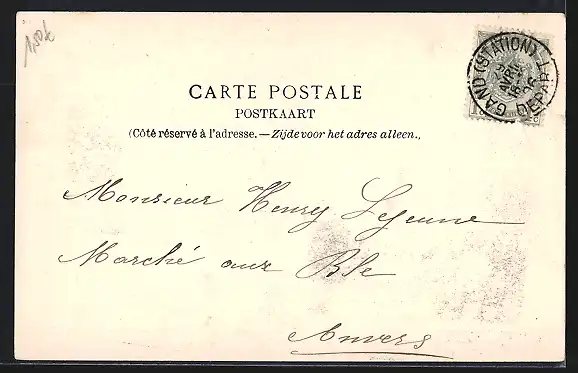 1,50€
CARTE POSTALE
POSTKAART
(Côté réservé à l'adresse. — Zijde voor het adres alleen.)
GAND (STATION) DEPART
AVRIL
Monsieur Henry Lejeune
Marché aux Ble
Anvers